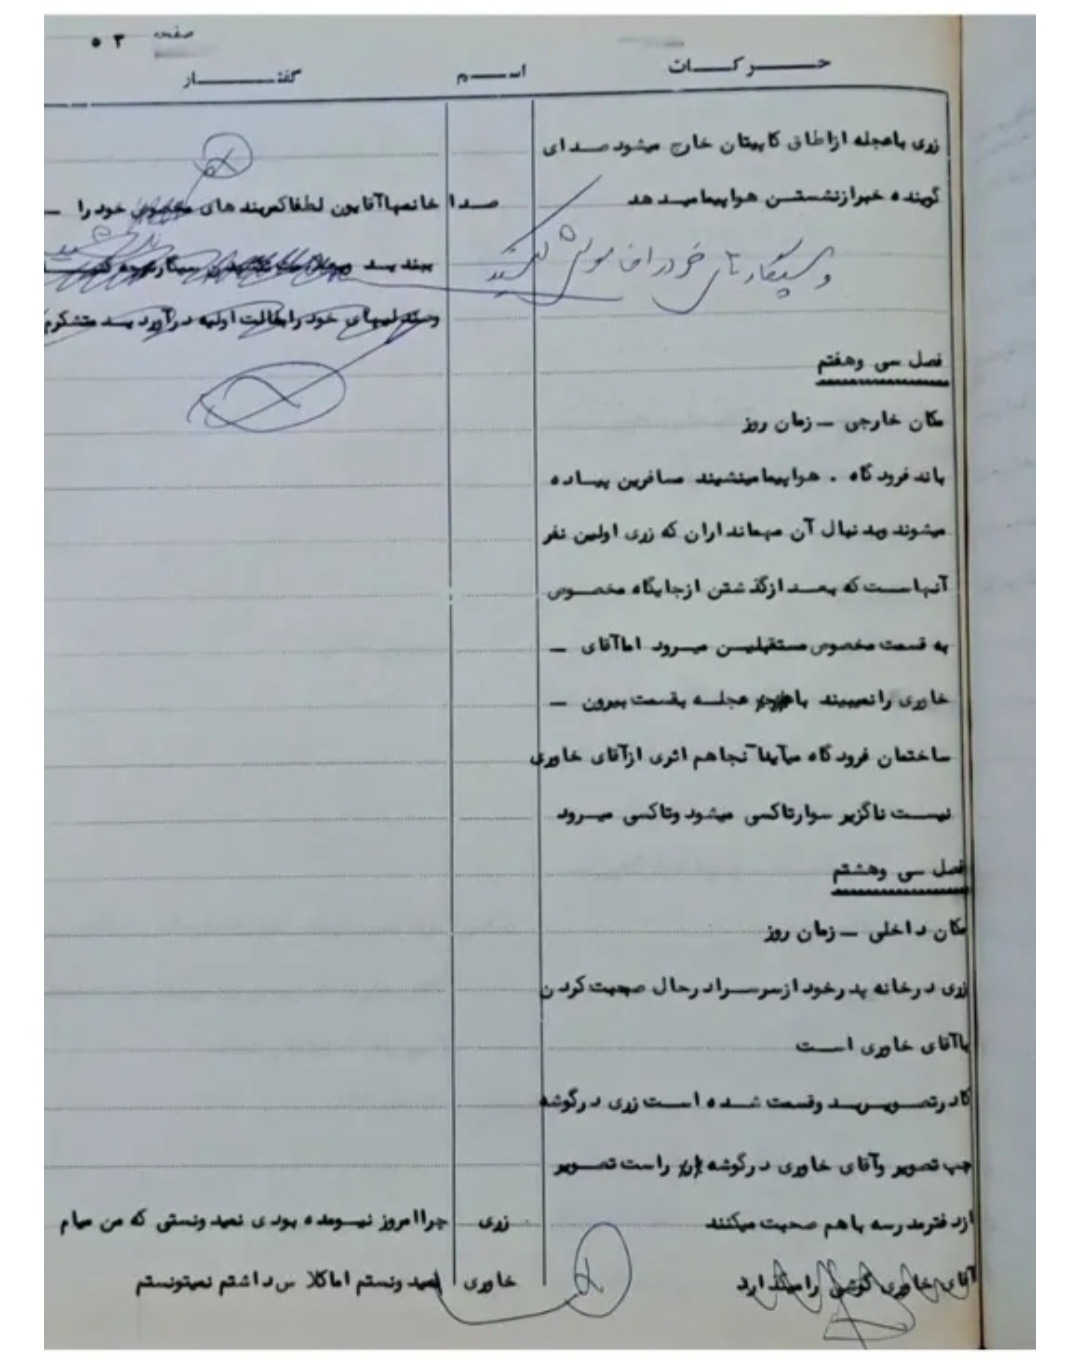 صفحه ۵۲
حرکات اسم گفتار
زری باعجله ازاطاق کاپیتان خارج میشود صدای
گوینده خبرازنشستن هواپیمامیدهد
صدا خانمهاآقایون لطفاکمربندهای خود را ـ
ببندید
وسیگارتان خودرا خاموش کنید
وصندلیهای خود رابحالت اولیه درآورید متشکرم
فصل سی وهفتم
مکان خارجی ـ زمان روز
باند فرودگاه . هواپیمامینشیند مسافرین پیاده
میشوند وبدنبال آن مهمانداران که زری اولین نفر
آنهاست که بعدازگذشتن ازجایگاه مخصوص
به قسمت مخصوص مستقبلین میرود اماآقای ـ
خاوری رانمیبیند با عجله بقسمت بیرون ـ
ساختمان فرودگاه میآیدآنجاهم اثری ازآقای خاوری
نیست ناگزیر سوارتاکسی میشود وتاکسی میرود
فصل سی وهشتم
مکان داخلی ـ زمان روز
زری درخانه پدرخود ازسرسرادرحال صحبت کردن
باآقای خاوری است
کادرتصویربد وقسمت شده است زری درگوشه
چپ تصویر وآقای خاوری درگوشه راست تصویر
ازدفترمدرسه باهم صحبت میکنند
زری چراامروز نیومده بودی نمیدونستی که من میام
آقای خاوری گوشی رامیدارد
خاوری نمیدونستم اماکلاس داشتم نمیتونستم